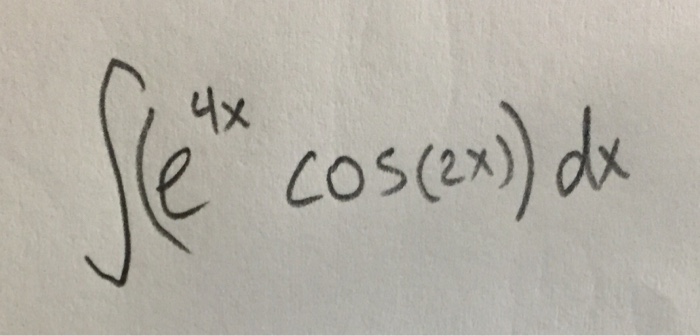 ∫(e^{4x} cos(2x)) dx